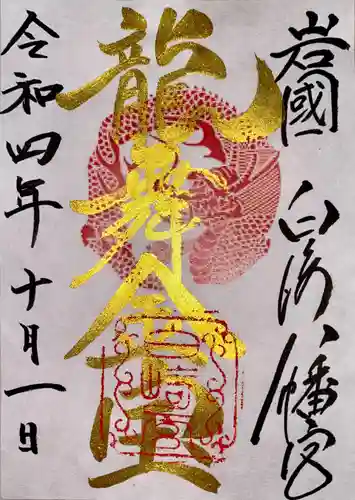 岩國 白崎八幡宮
龍舞金運
令和四年十月一日